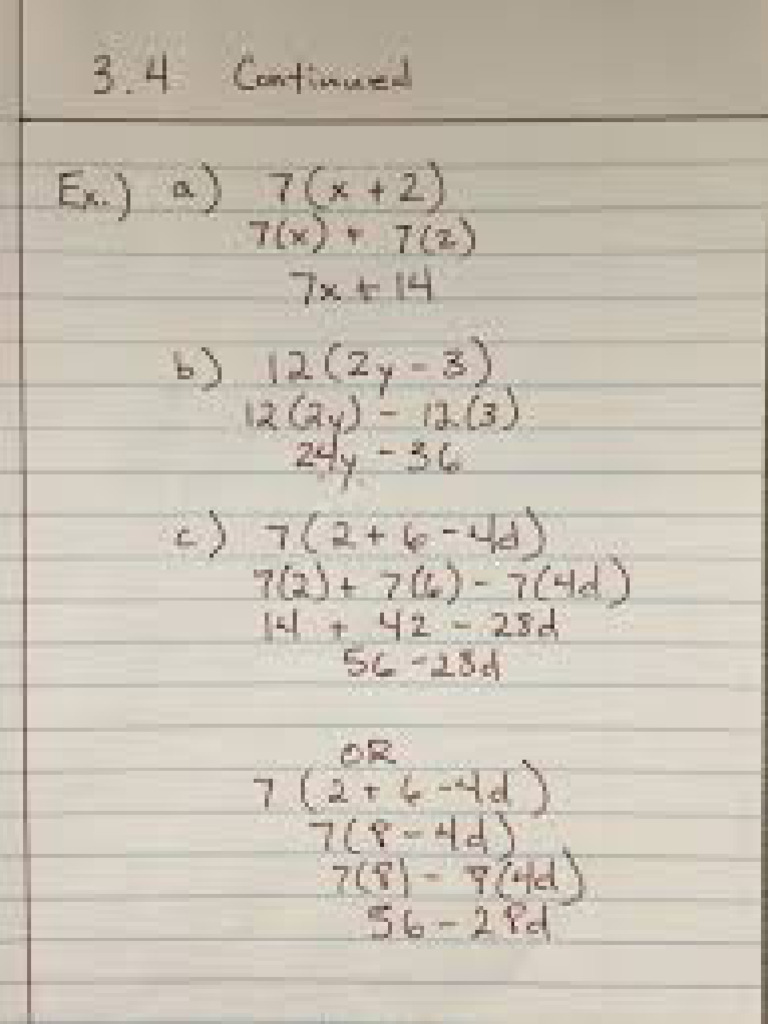 3.4 Continued
Ex.) a) 7(x + 2)
7(x) + 7(2)
7x + 14
b) 12(2y - 3)
12(2y) - 12(3)
24y - 36
c) 7(2 + 6 - 4d)
7(2) + 7(6) - 7(4d)
14 + 42 - 28d
56 - 28d
OR
7(2 + 6 - 4d)
7(8 - 4d)
7(8) - 8(4d)
56 - 28d